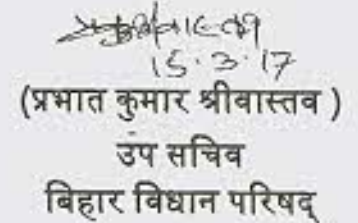 15.3.17
(प्रभात कुमार श्रीवास्तव )
उप सचिव
बिहार विधान परिषद्